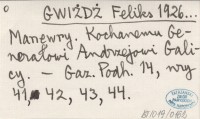 GWIŻDŻ Feliks 1926...
Manewry. Kochanemu Ge-
nerałowi Andrzejowi Gali-
cy. – Gaz. Podh. 14, nry
41, 42, 43, 44.